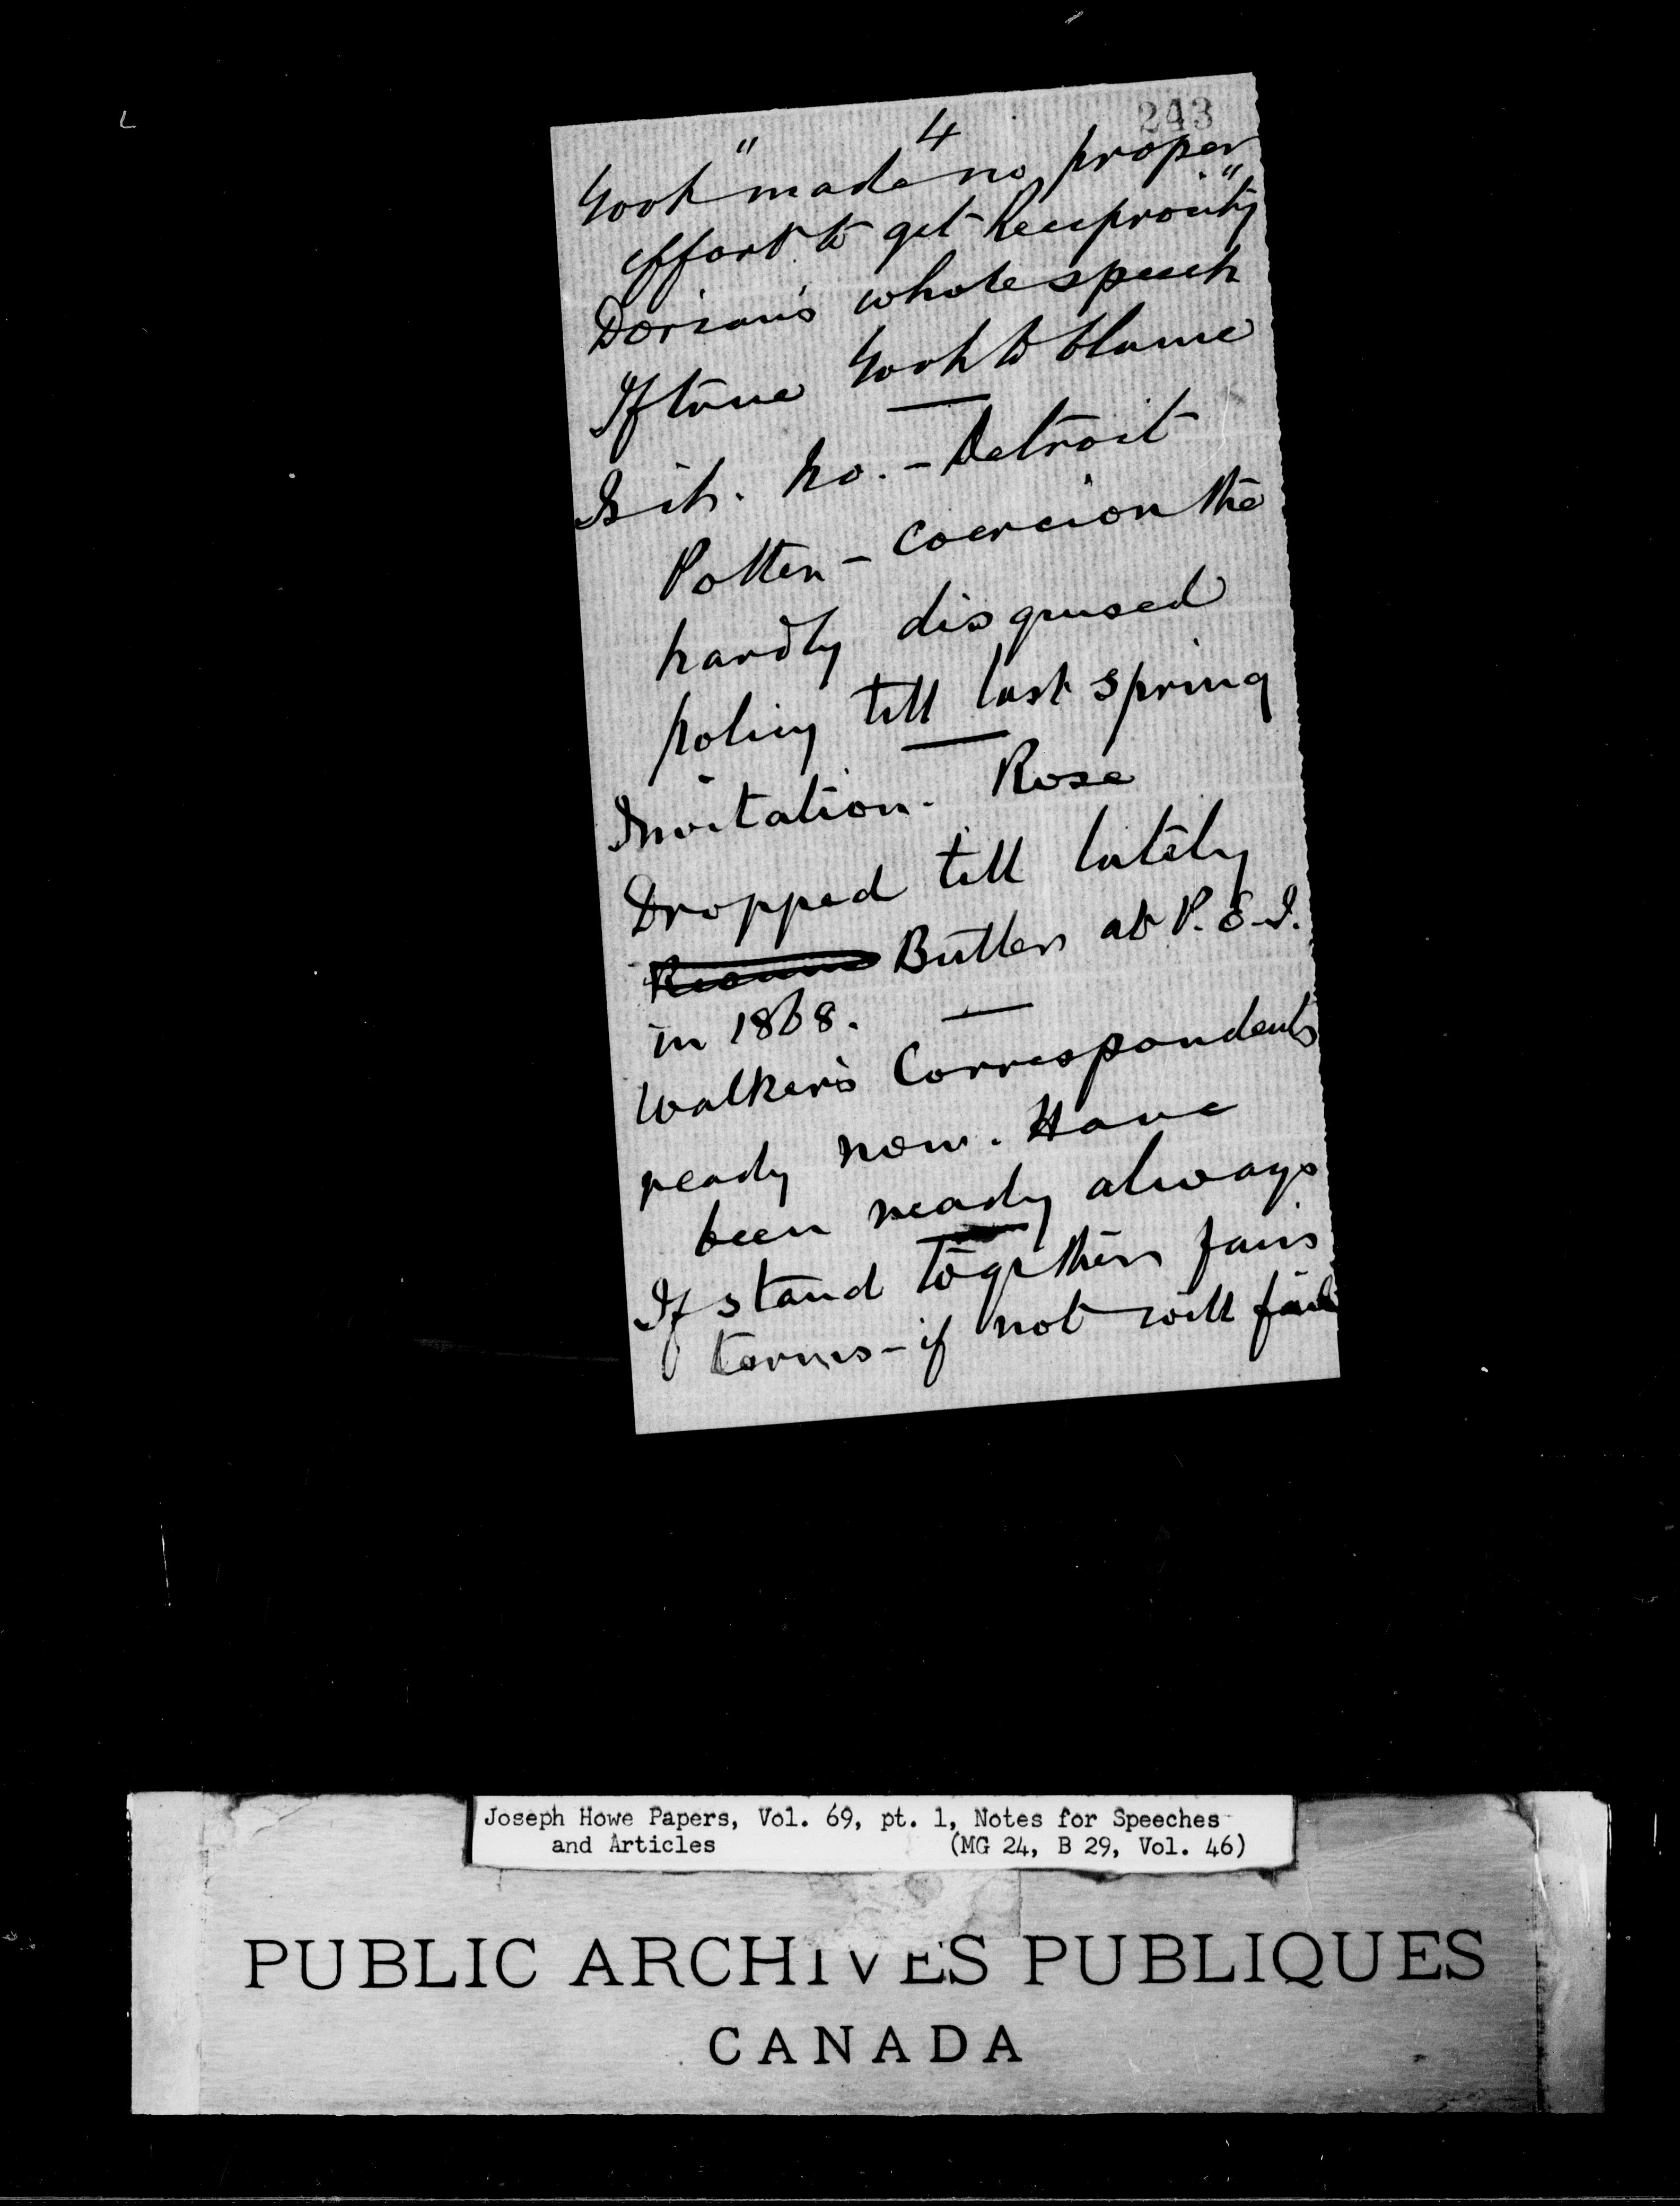 243
4
Govt "made no proper
effort to get Reciprocity"
Dorion's whole speech
If true Govt to blame
Is it. No. - Detroit
Potter - Coercion the
hardly disguised
policy till last spring
Invitation. Rose
Dropped till lately
Butler at P. E. I.
in 1868.
Walker's Correspondents
ready now. Have
been ready always
If stand together fair
terms - if not will fail
Joseph Howe Papers, Vol. 69, pt. 1, Notes for Speeches
and Articles (MG 24, B 29, Vol. 46)
PUBLIC ARCHIVES PUBLIQUES
CANADA